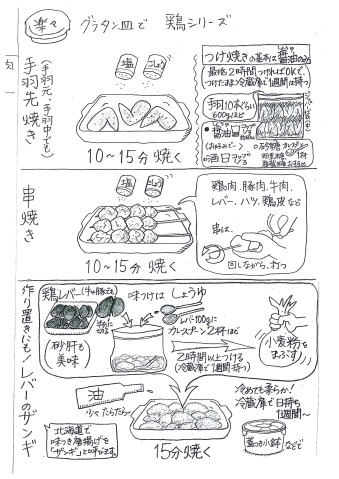 楽々
グラタン皿で 鶏シリーズ
手羽先焼き
(手羽元、手羽中でも)
塩
こしょう
10～15分焼く
つけ焼きの基本は醤油
最低2時間つければOKで、
つけたまま冷蔵庫で1週間は持つ
手羽10本ぐらい
600gほど
醤油
酒
串焼き
塩
こしょう
10～15分焼く
鶏肉、豚肉、牛肉、
レバー、ハツ、鶏皮など
串は、
回しながら、打つ
作り置きにも!レバーのザンギ
鶏レバー(牛や豚でも)
半分に
切る
砂肝も
美味
味つけは しょうゆ
レバー100gに
カレースプーン2杯ほど
2時間以上つける
(冷蔵庫で1週間持つ)
小麦粉を
まぶす
油
少々たらたら～
北海道で
味つき唐揚げを
「ザンギ」と呼びます。
15分焼く
冷めても柔らか!
冷蔵庫で日持ち
1週間～
蓋つき小鉢 などで